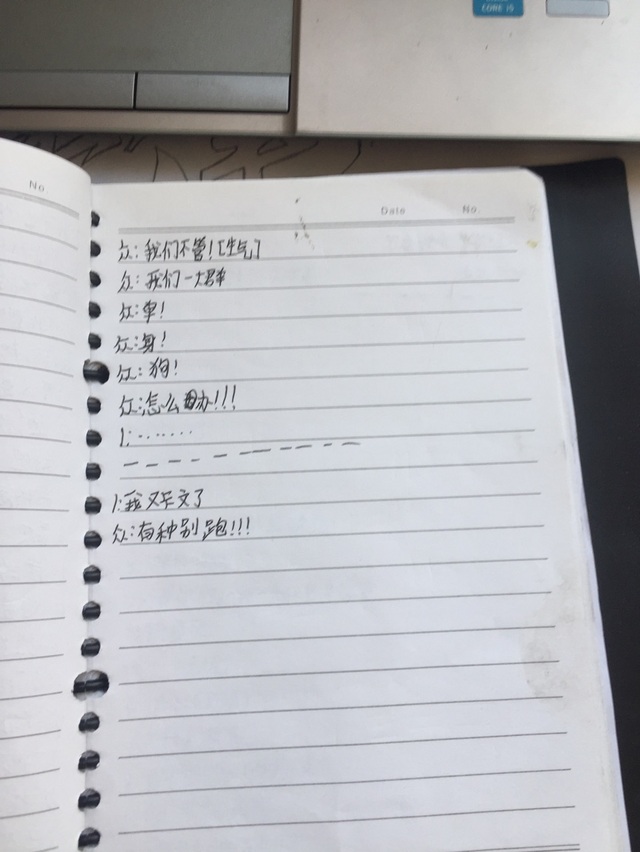 CORE i5
No
Date No.
众:我们不管![生气]
众:我们一大群
众:单!
众:身!
众:狗!
众:怎么办!!!
1:......
1:我又卡文了
众:有种别跑!!!